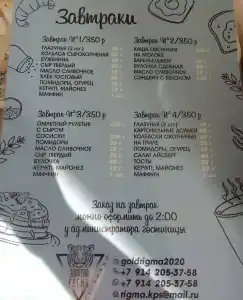 Завтраки
Завтрак №1/350 р
ГЛАЗУНЬЯ (2 шт.)
КОЛБАСА СЫРОКОПЧЕНАЯ
БУЖЕНИНА
СЫР ТВЕРДЫЙ
МАСЛО СЛИВОЧНОЕ
ХЛЕБ ТОСТОВЫЙ
ПОМИДОРЫ, ОГУРЕЦ
КЕТЧУП, МАЙОНЕЗ
МАФФИН
Завтрак №2/350 р
КАША ОВСЯНАЯ
НА МОЛОКЕ
ВАРЕНЬЕ/ДЖЕМ
БУЛОЧКА СДОБНАЯ
МАСЛО СЛИВОЧНОЕ
СЭНДВИЧ С БЕКОНОМ
Завтрак №3/350 р
ОМЛЕТНЫЙ РУЛЕТИК
С СЫРОМ
СОСИСКИ
ПОМИДОРЫ
МАСЛО СЛИВОЧНОЕ
СЫР ТВЕРДЫЙ
БУЛОЧКА
КЕТЧУП, МАЙОНЕЗ
МАФФИН
Завтрак №4/350 р
ГЛАЗУНЬЯ (2 шт.)
КАРТОФЕЛЬНЫЕ ДОЛЬКИ
КОЛБАСКИ ОХОТНИЧЬИ
НА ГРИЛЕ
ПОМИДОРЫ, ОГУРЕЦ
САЛАТ АЙСБЕРГ
ТОСТЫ
КЕТЧУП, МАЙОНЕЗ
МАФФИН
Заказ на завтрак
можно оформить до 2:00
у администратора гостиницы
goldrigma2020
+7 914 205-37-58
+7 914 205-37-58
rigma.kps@mail.ru